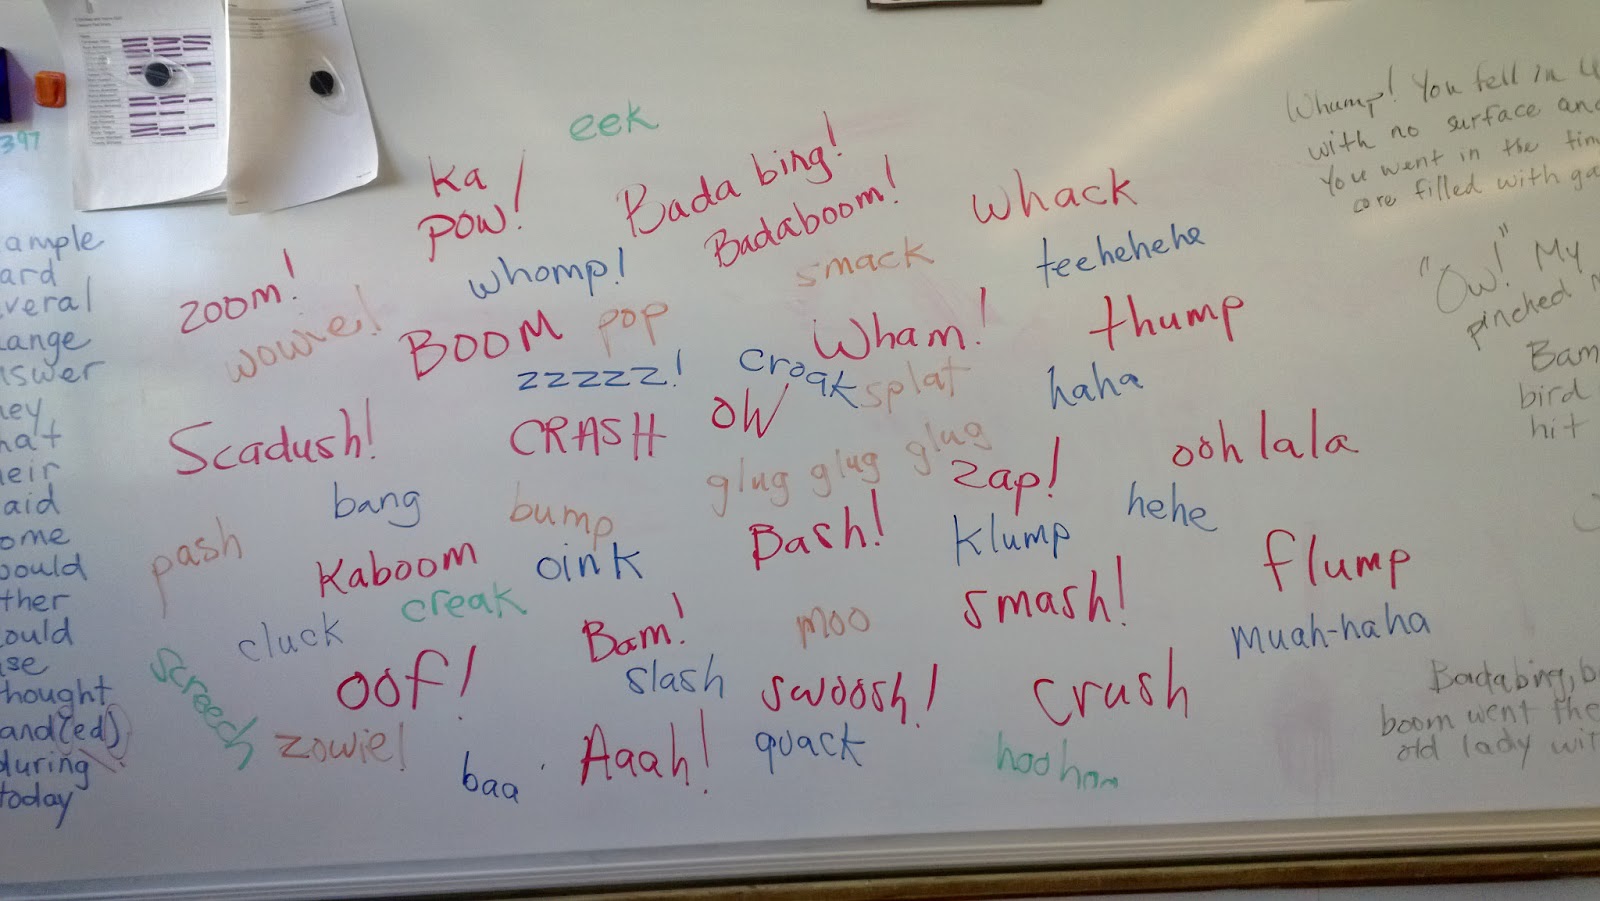 397
ample
ard
veral
ange
nswer
hey
hat
heir
aid
ome
ould
ther
ould
use
thought
and(ed)
during
today
eek
Ka
POW!
Bada bing!
Badaboom!
whack
zoom!
whomp!
smack
teehehehe
wowie!
BOOM
pop
Wham!
thump
zzzzz!
croak
splat
haha
Scadush!
CRASH
OW
glug glug glug
zap!
ooh lala
bang
bump
Bash!
klump
hehe
pash
Kaboom
oink
flump
creak
smash!
cluck
Bam!
moo
muah-haha
screech
oof!
slash
swoosh!
crush
zowie!
baa
Aaah!
quack
Whump! You fell in
with no surface and
You went in the tim
core filled with ga
"Ow!" My
pinched
Bam
bird
hit
Badabing, b
boom went the
old lady wit